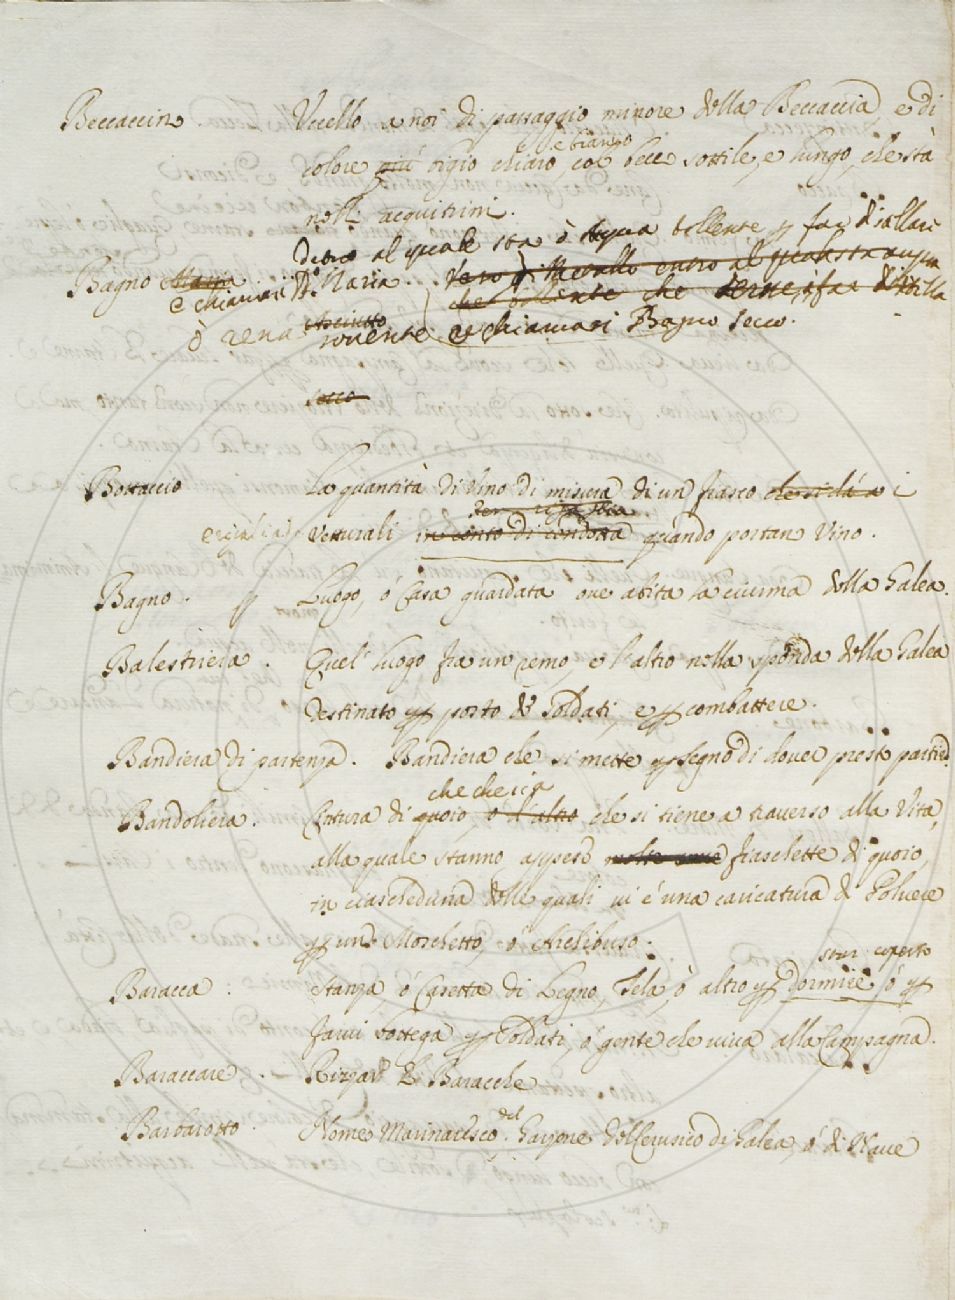 Beccaccino. Uccello a noi di passaggio minore della Beccaccia, e di
colore più bigio chiaro, e bianco col becco sottile, e lungo, che stà
nelli acquitrini.
Dietro al quale sta ò Aqua bollente p far distillare
Bagno Maria
e chiamasi Bº Maria. Vaso di Metallo entro al quale sta aqua
che bollente che serve p far distilla
ò rena asciutto rovente e chiamasi Bagno Secco.
secco
Bottaccio La quantità di Vino di misura di un fiasco che si dà a i
Vetturali in conto di condotta quando portan Vino.
Bagno. Luogo, ó Casa guardata ove abita la ciurma della Galea.
Balestriera. Quel luogo fra un remo, e l'altro nella sponda della Galea
destinato p posto de Soldati, e p combattere.
Bandiera di partenza. Bandiera che si mette p segno di dover presto partire.
che che sia
Bandoliera. Cintura di quoio, ó d'altro che si tiene a traverso alla Vita,
alla quale stanno appese molte fiaschette di quoio,
in ciascheduna delle quali vi é una caricatura di Polvere
p un Moschetto, ó Archibuso.
star coperto
Baracca. Stanza, ó Casetta di Legno, Tela, ò altro p dormire ó p
farvi bottega p Soldati, ó gente che viva alla Campagna.
Baraccare. Rizzar le Baracche
Barbarotto. Nome Marinaresco del Garzone del Cerusico di Galea, ó di Nave